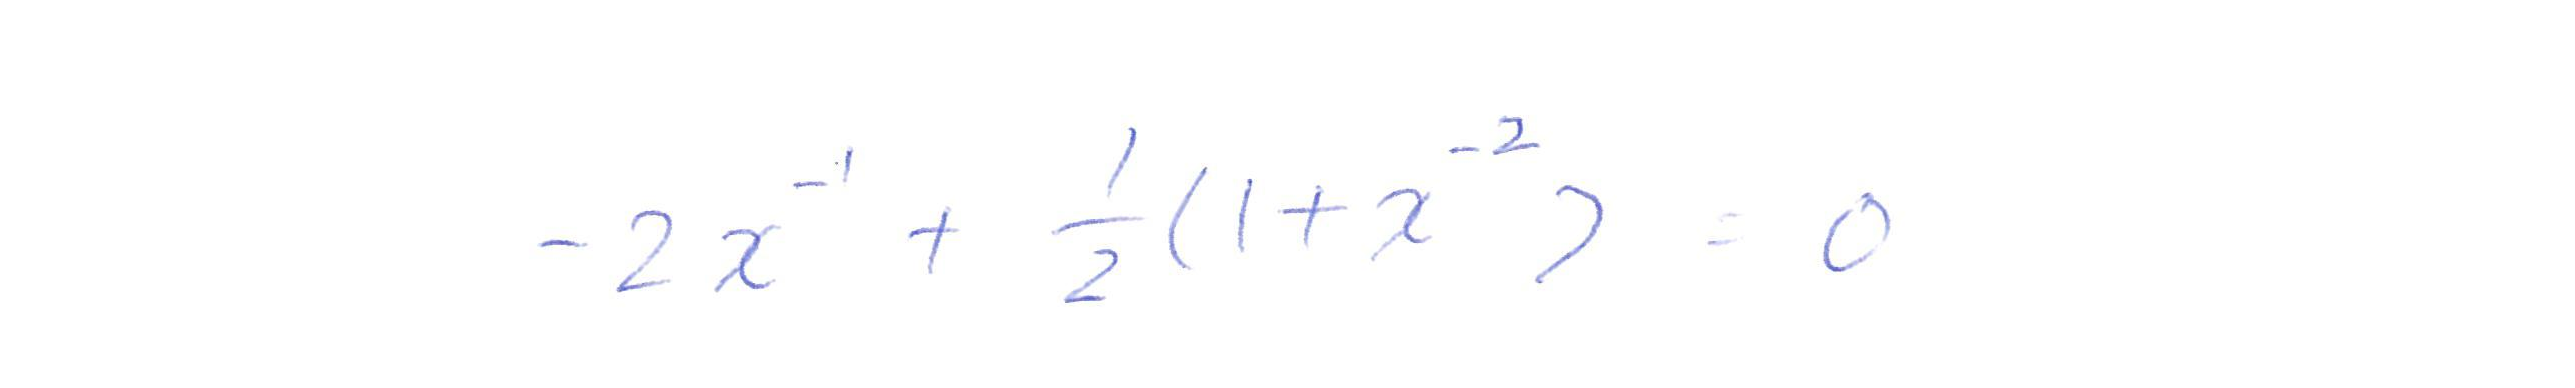 -2x^{-1} + \frac{1}{2}(1+x^{-2}) = 0